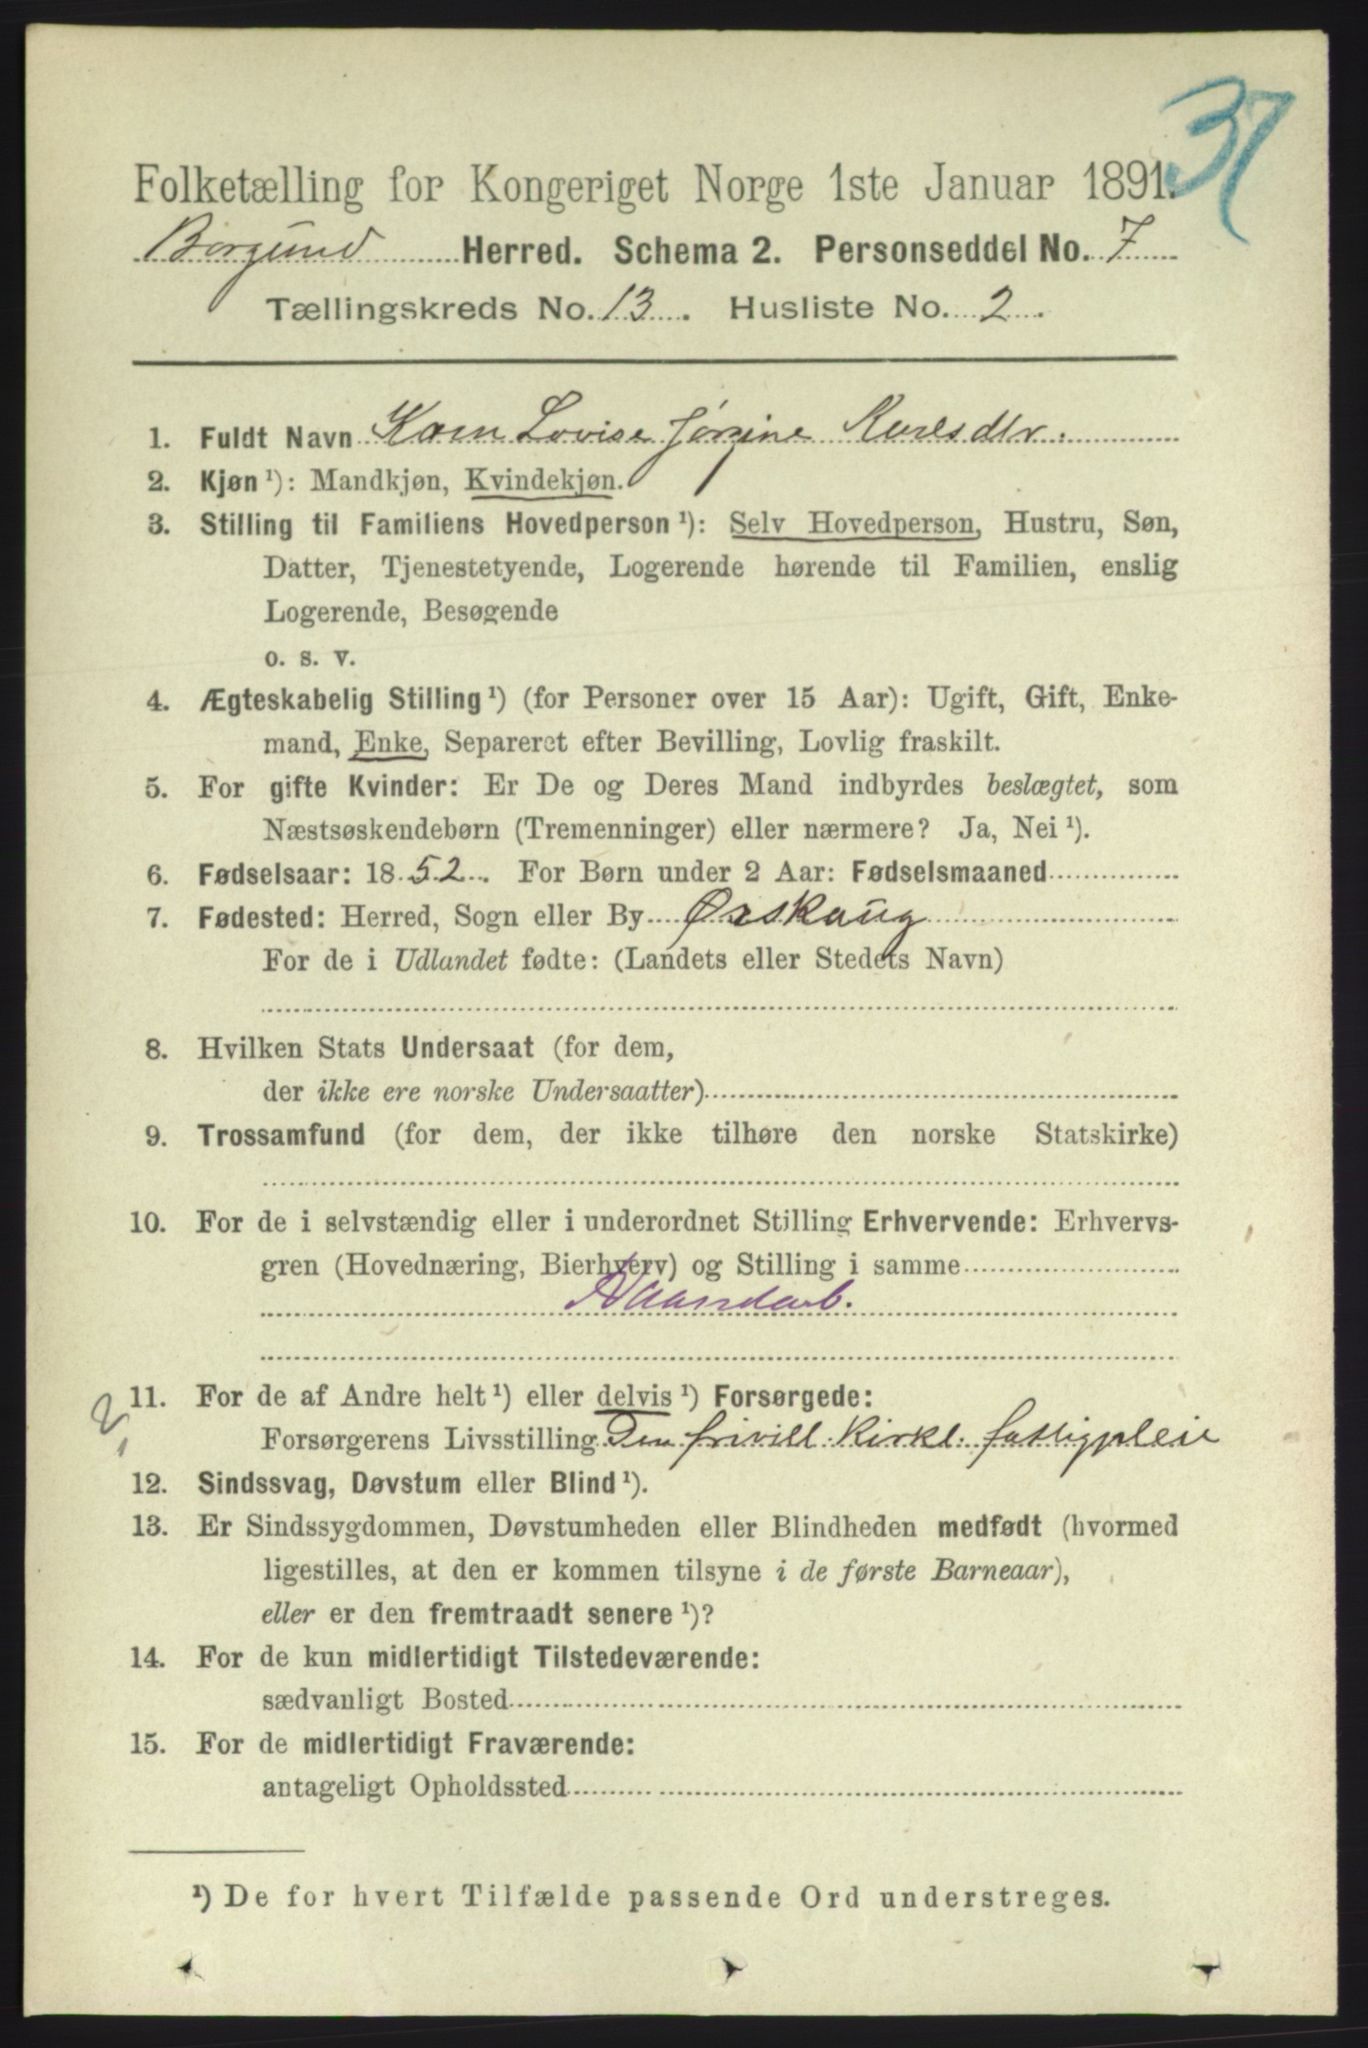 37
Folketælling for Kongeriget Norge 1ste Januar 1891.
Borgund Herred. Schema 2. Personseddel No. 7
Tællingskreds No. 13. Husliste No. 2.
1. Fuldt Navn Karen Lovise Jørgine Karlsdtr.
2. Kjøn ¹): Mandkjøn, Kvindekjøn.
3. Stilling til Familiens Hovedperson ¹): Selv Hovedperson, Hustru, Søn,
Datter, Tjenestetyende, Logerende hørende til Familien, enslig
Logerende, Besøgende
o. s. v.
4. Ægteskabelig Stilling ¹) (for Personer over 15 Aar): Ugift, Gift, Enke-
mand, Enke, Separeret efter Bevilling, Lovlig fraskilt.
5. For gifte Kvinder: Er De og Deres Mand indbyrdes beslægtet, som
Næstsøskendebørn (Tremenninger) eller nærmere? Ja, Nei ¹).
6. Fødselsaar: 1852. For Børn under 2 Aar: Fødselsmaaned
7. Fødested: Herred, Sogn eller By Ørskoug
For de i Udlandet fødte: (Landets eller Stedets Navn)
8. Hvilken Stats Undersaat (for dem,
der ikke ere norske Undersaatter)
9. Trossamfund (for dem, der ikke tilhøre den norske Statskirke)
10. For de i selvstændig eller i underordnet Stilling Erhvervende: Erhvervs-
gren (Hovednæring, Bierhverv) og Stilling i samme
Haandarb.
11. For de af Andre helt ¹) eller delvis ¹) Forsørgede:
Forsørgerens Livsstilling Den frivill. Kirkl. fattigpleie
12. Sindssvag, Døvstum eller Blind ¹).
13. Er Sindssygdommen, Døvstumheden eller Blindheden medfødt (hvormed
ligestilles, at den er kommen tilsyne i de første Barneaar),
eller er den fremtraadt senere ¹)?
14. For de kun midlertidigt Tilstedeværende:
sædvanligt Bosted
15. For de midlertidigt Fraværende:
antageligt Opholdssted
¹) De for hvert Tilfælde passende Ord understreges.